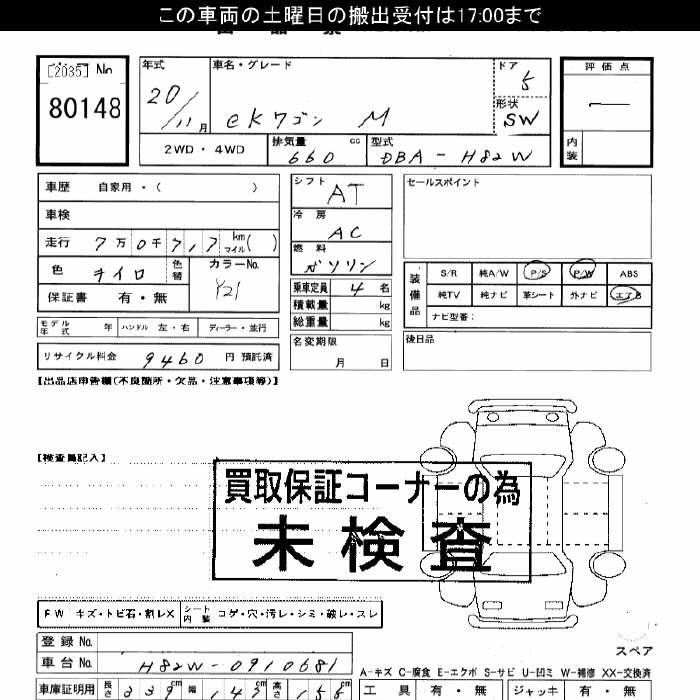 この車両の土曜日の搬出受付は17:00まで
[2035] No
80148
年式 20/11月
車名・グレード ekワゴン M
ドア 5
形状 SW
評価点
内装
2WD・4WD
排気量 660 cc
型式 DBA-H82W
車歴 自家用・( )
車検
走行 7万0千717 km マイル( )
色 キイロ 色替 カラーNo. Y21
保証書 有・無
シフト AT
冷房 AC
燃料 ガソリン
乗車定員 4 名
積載量 kg
総重量 kg
セールスポイント
装備品 S/R 純A/W P/S P/W ABS
純TV 純ナビ 革シート 外ナビ エアB
ナビ型番:
モデル年式 年 ハンドル 左・右 ディーラー・並行
リサイクル料金 9460 円 預託済
名変期限 月 日
後日品
【出品店申告欄(不良箇所・欠品・注意事項等)】
【検査員記入】
買取保証コーナーの為
未検査
FW キズ・トビ石・割レX シート内装 コゲ・穴・汚レ・シミ・破レ・スレ
登録No.
車台No. H82W-0910681
スペア
A-キズ C-腐食 E-エクボ S-サビ U-凹ミ W-補修 XX-交換済
車庫証明用 長さ 339cm 幅 147cm 高さ 155cm
工具 有・無 ジャッキ 有・無